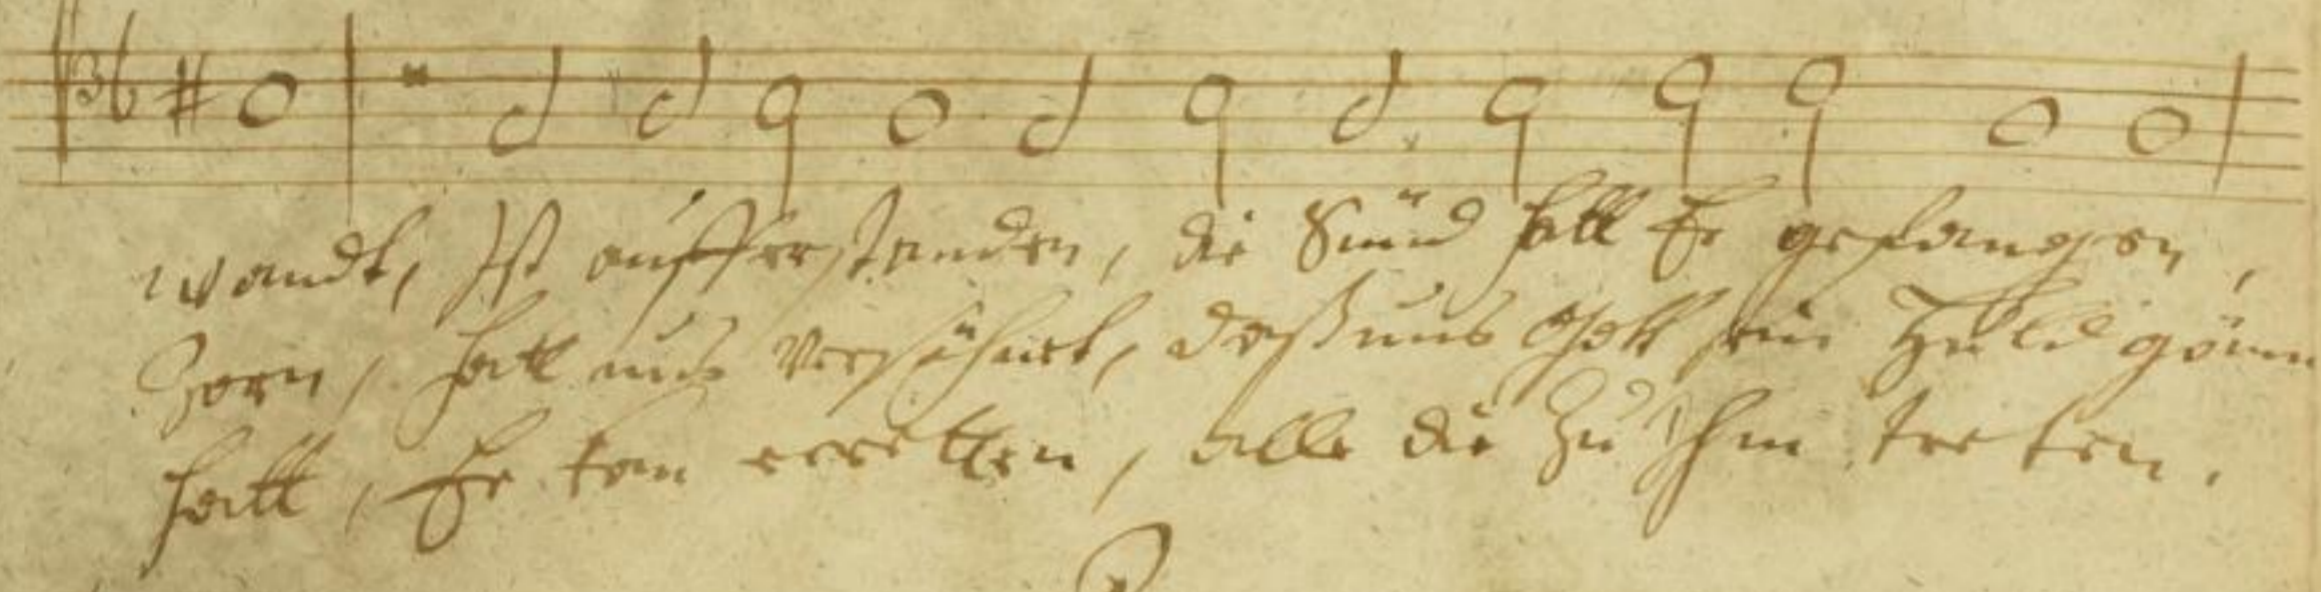 wandt, Ist aufferstanden, die Sünd hatt Er gefangen,
Zorn, hatt uns Versöhnet, daß uns Gott sein Huld gönn
hatt, Er kan erretten, alle die Zu Ihm treten.